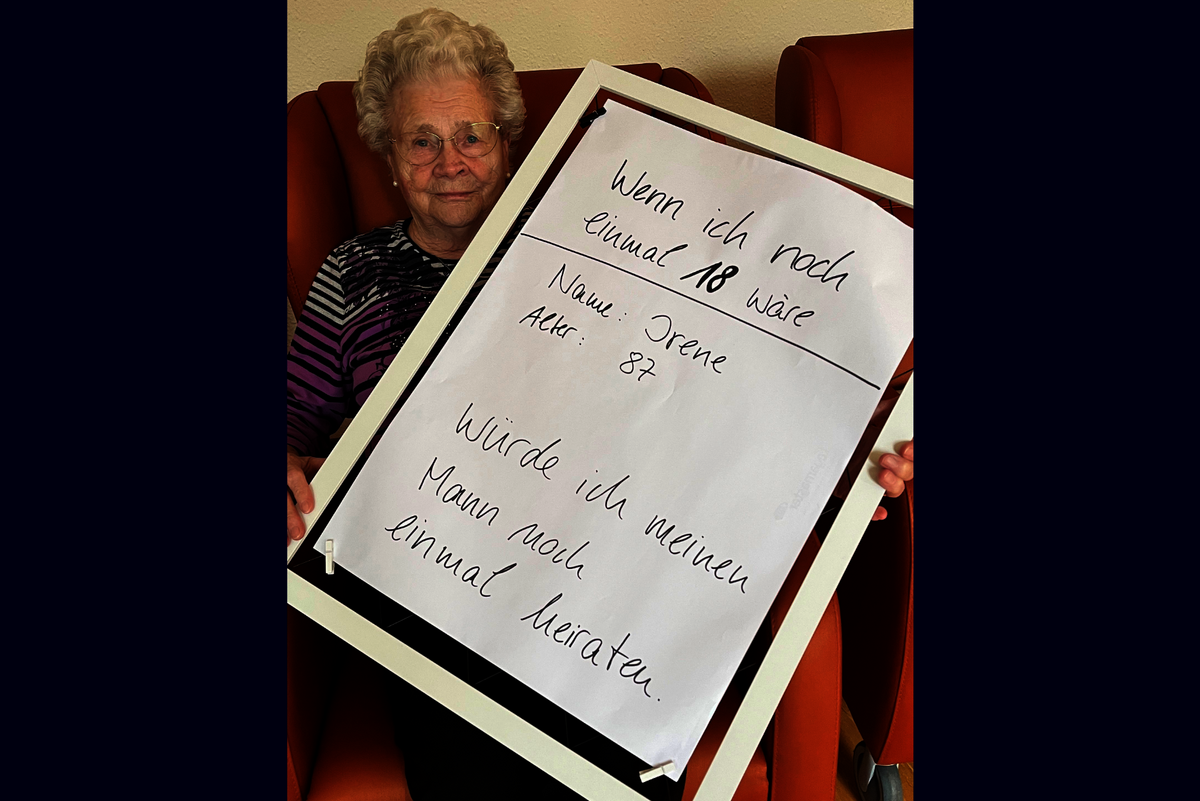 Wenn ich noch
einmal 18 wäre
Name: Irene
Alter: 87
Würde ich meinen
Mann noch
einmal heiraten.